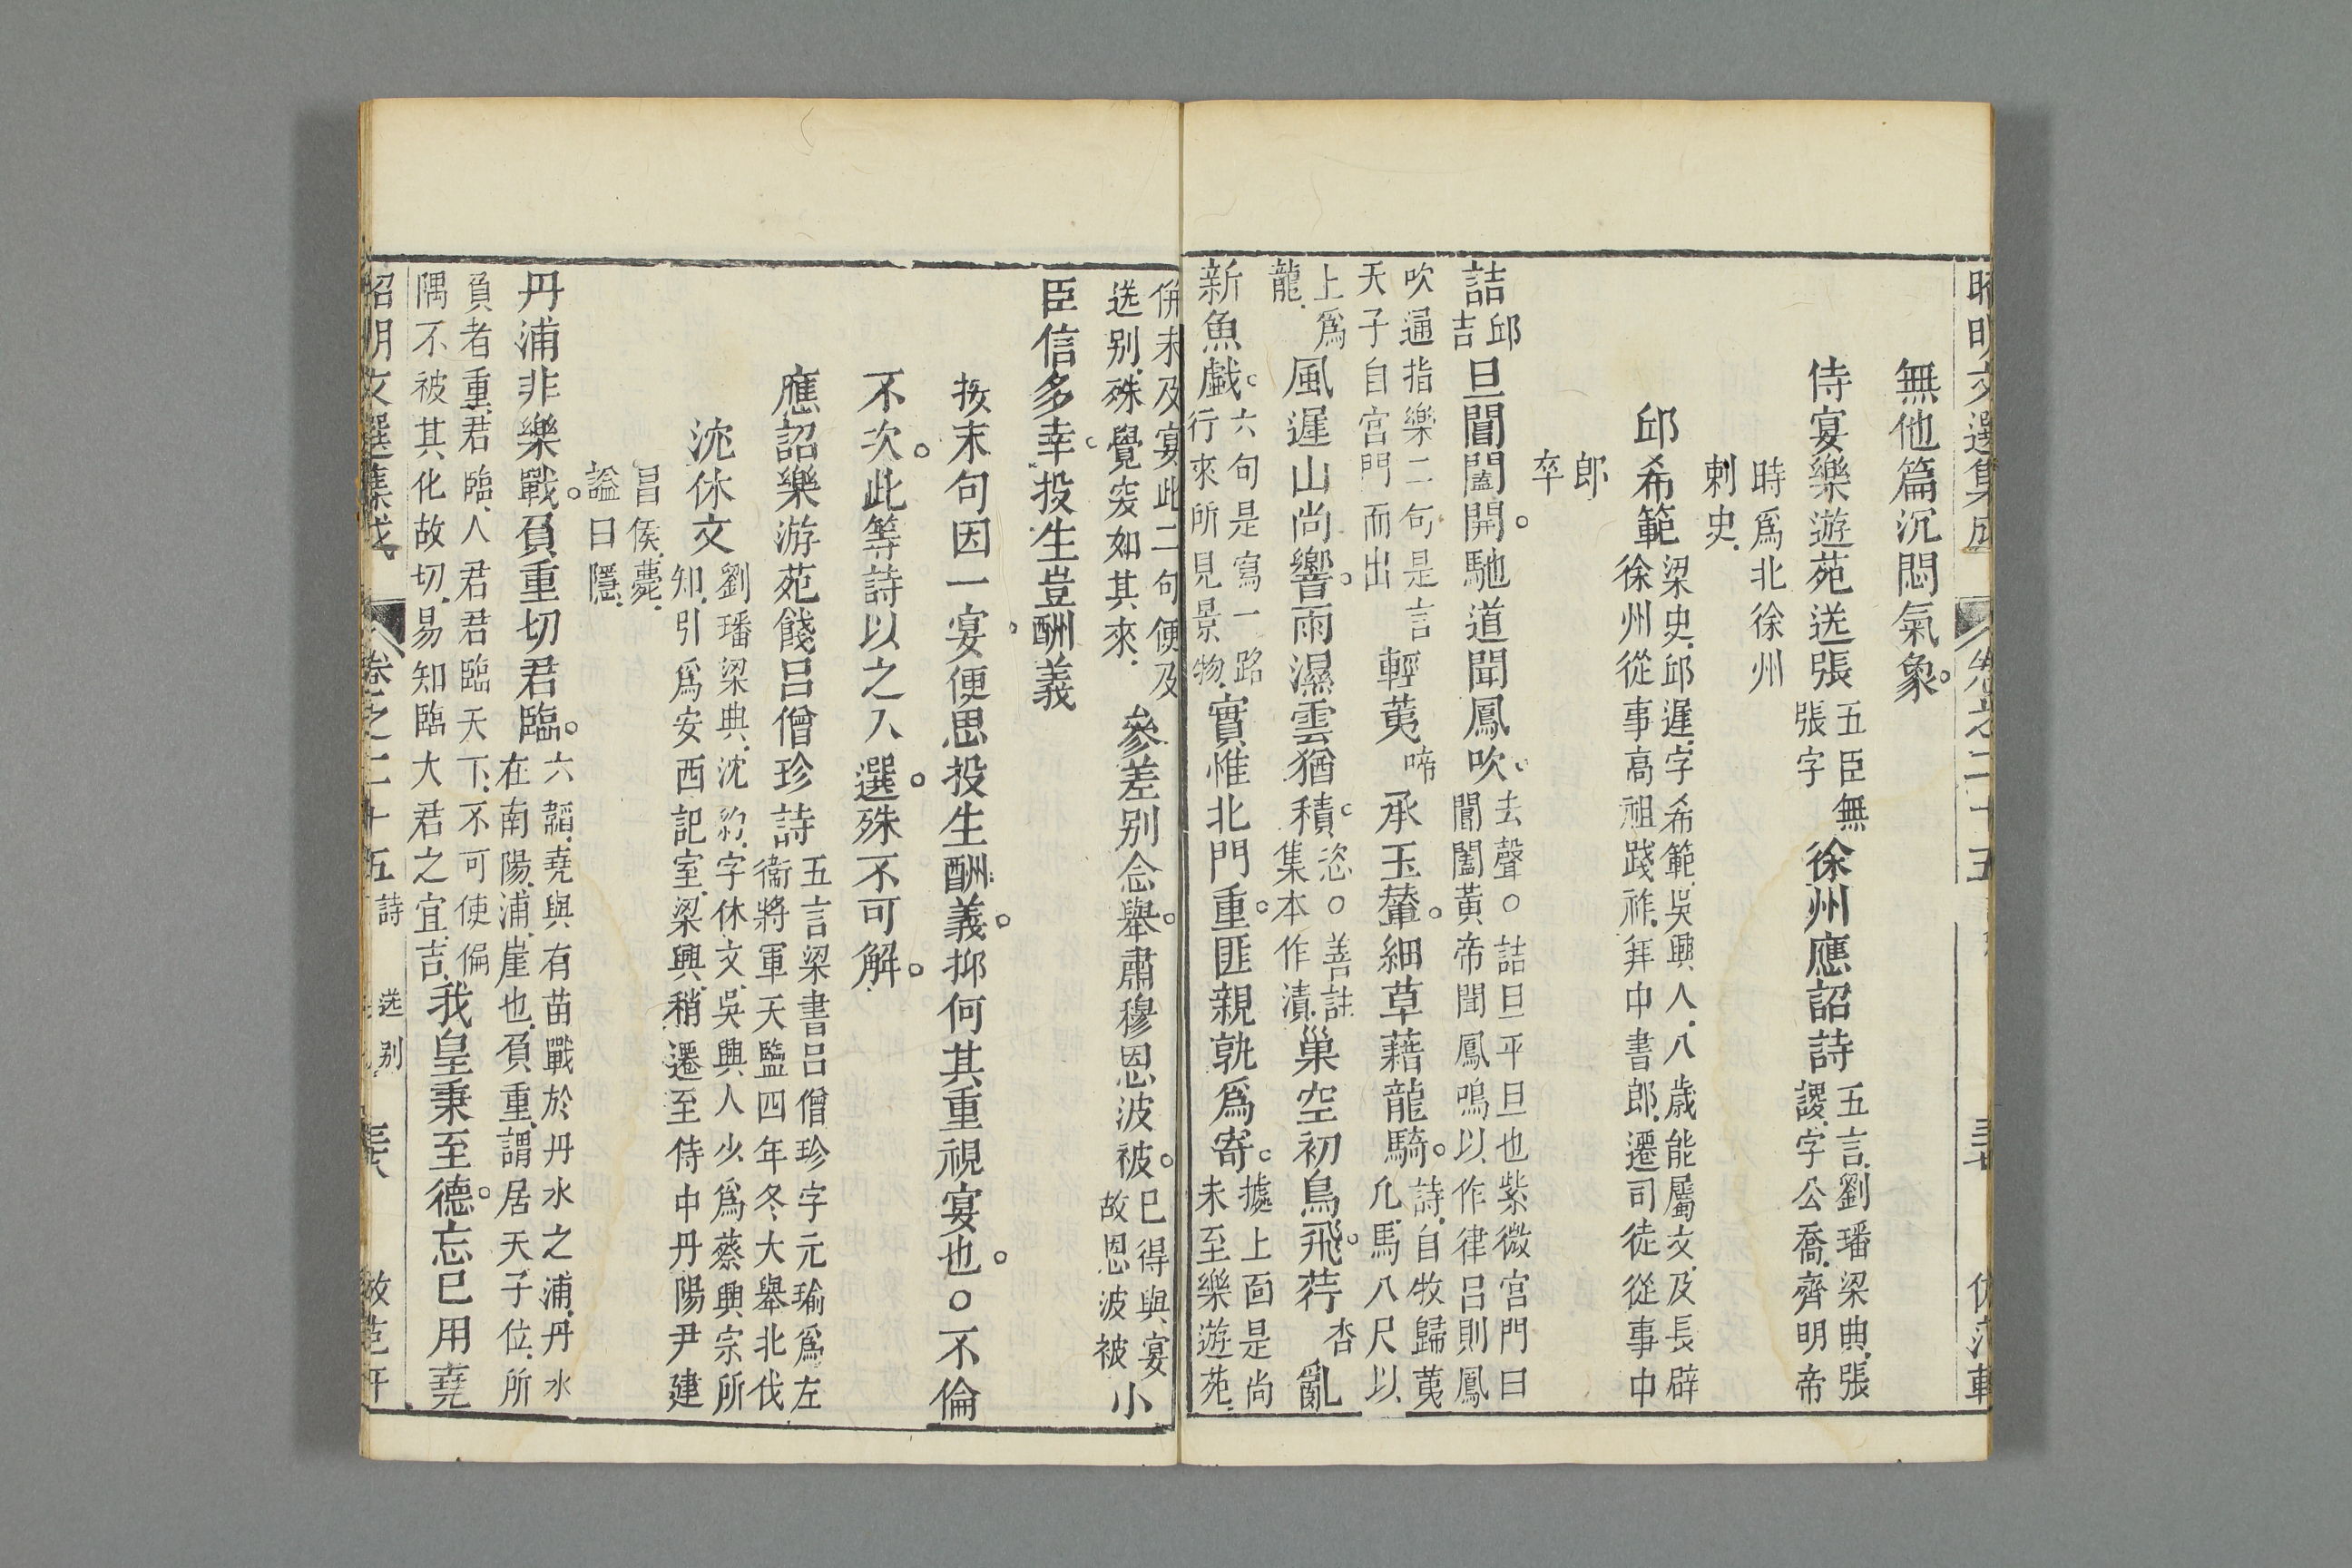 昭明文選集成 卷之二十五
無他篇沉悶氣象。
侍宴樂遊苑送張五臣無張字徐州應詔詩五言.劉璠梁典.張謖.字公喬.齊明帝
時爲北徐州刺史.
邱希範梁史.邱遲.字希範.吳興人.八歲能屬文.及長辟徐州從事高祖踐祚.拜中書郎.遷司徒從事中
郎卒
詰邱吉旦閶闔開。馳道聞鳳吹。去聲○詰旦平旦也紫微宮門曰閶闔黃帝聞鳳鳴以作律呂則鳳
吹通指樂二句是言天子自宮門而出輕荑啼承玉輦。細草藉龍騎。詩.自牧歸荑凢.馬八尺以
上爲龍.風遲山尚響。雨濕雲猶積。恣○善註集本作漬.巢空初鳥飛。荇杏亂
新魚戲。六句是寫一路行來所見景物.實惟北門重。匪親孰爲寄。據上面是尚未至樂遊苑.
倂未及宴此二句便及送别.殊覺突如其來.參差别念舉。肅穆恩波被。巳得與宴故恩波被小
臣信多幸。投生豈酬義。
按末句因一宴便思投生酬義。抑何其重視宴也。○不倫
不次。此等詩以之入選。殊不可解。
應詔樂游苑餞呂僧珍詩五言梁書呂僧珍字元瑜爲左衞將軍天監四年冬大舉北伐
沈休文劉璠梁典.沈約.字休文.吳興人少爲蔡興宗所知.引爲安西記室.梁興.稍遷至侍中丹陽尹建
昌侯.薨.謚曰隱.
丹浦非樂戰。負重切君臨。六韜.堯與有苗戰於丹水之浦.丹水在南陽.浦.崖也.負重.謂居天子位.所
負者重.君臨.人君君臨天下.不可使偏隅不被其化故切.易知臨大君之宜.吉.我皇秉至德。忘巳用堯
昭明文選集成 卷之二十五 詩 送别